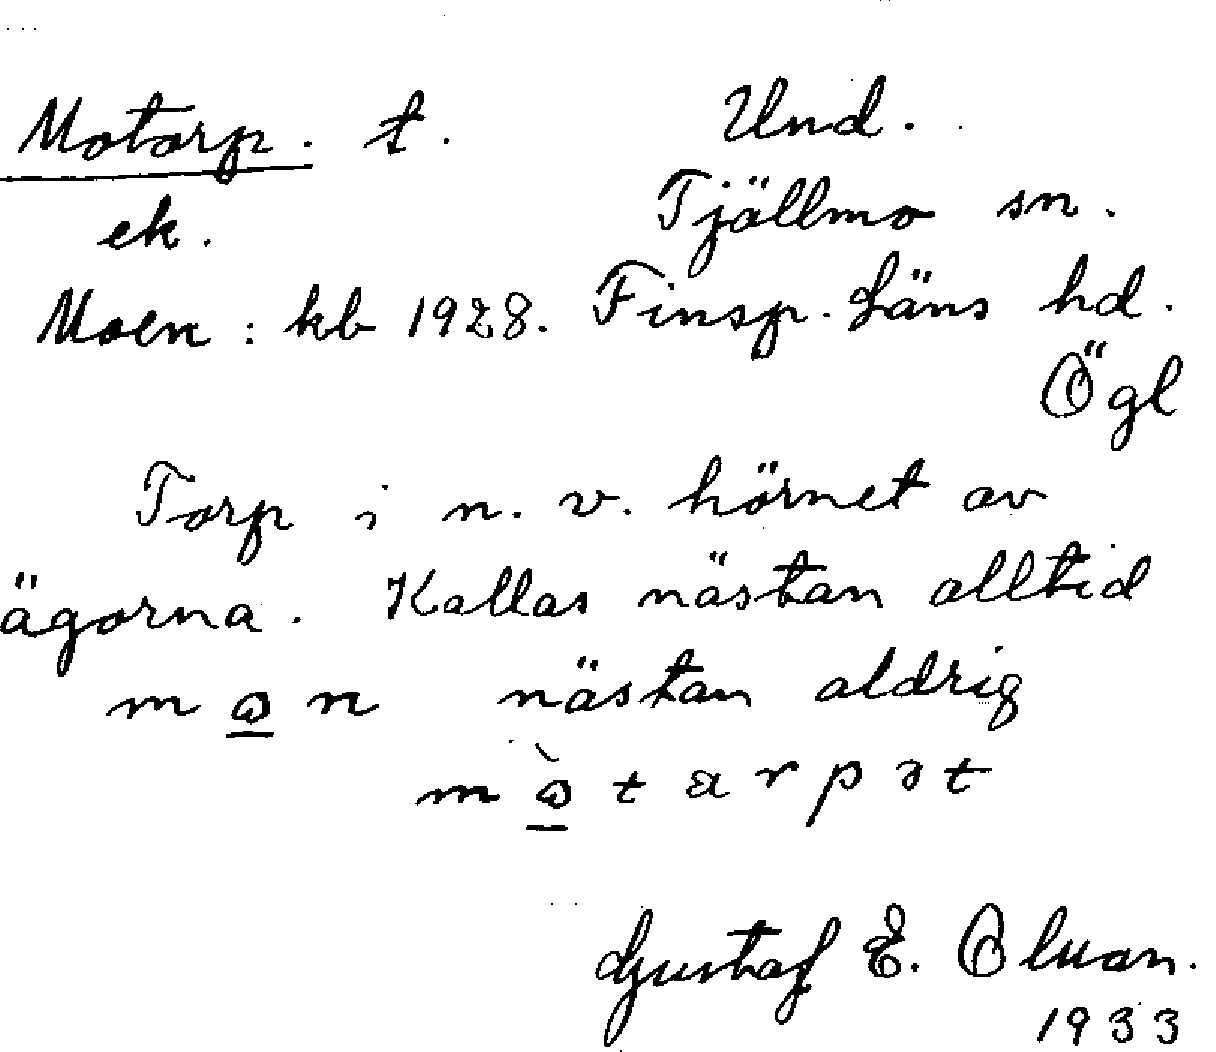 Motorp. t. Und.
ek. Tjällmo sn.
Moen: kb 1928. Finsp. Läns hd.
Ögl
Torp i n. v. hörnet av
ägorna. Kallas nästan alltid
nästan aldrig
Gustaf E.
1933